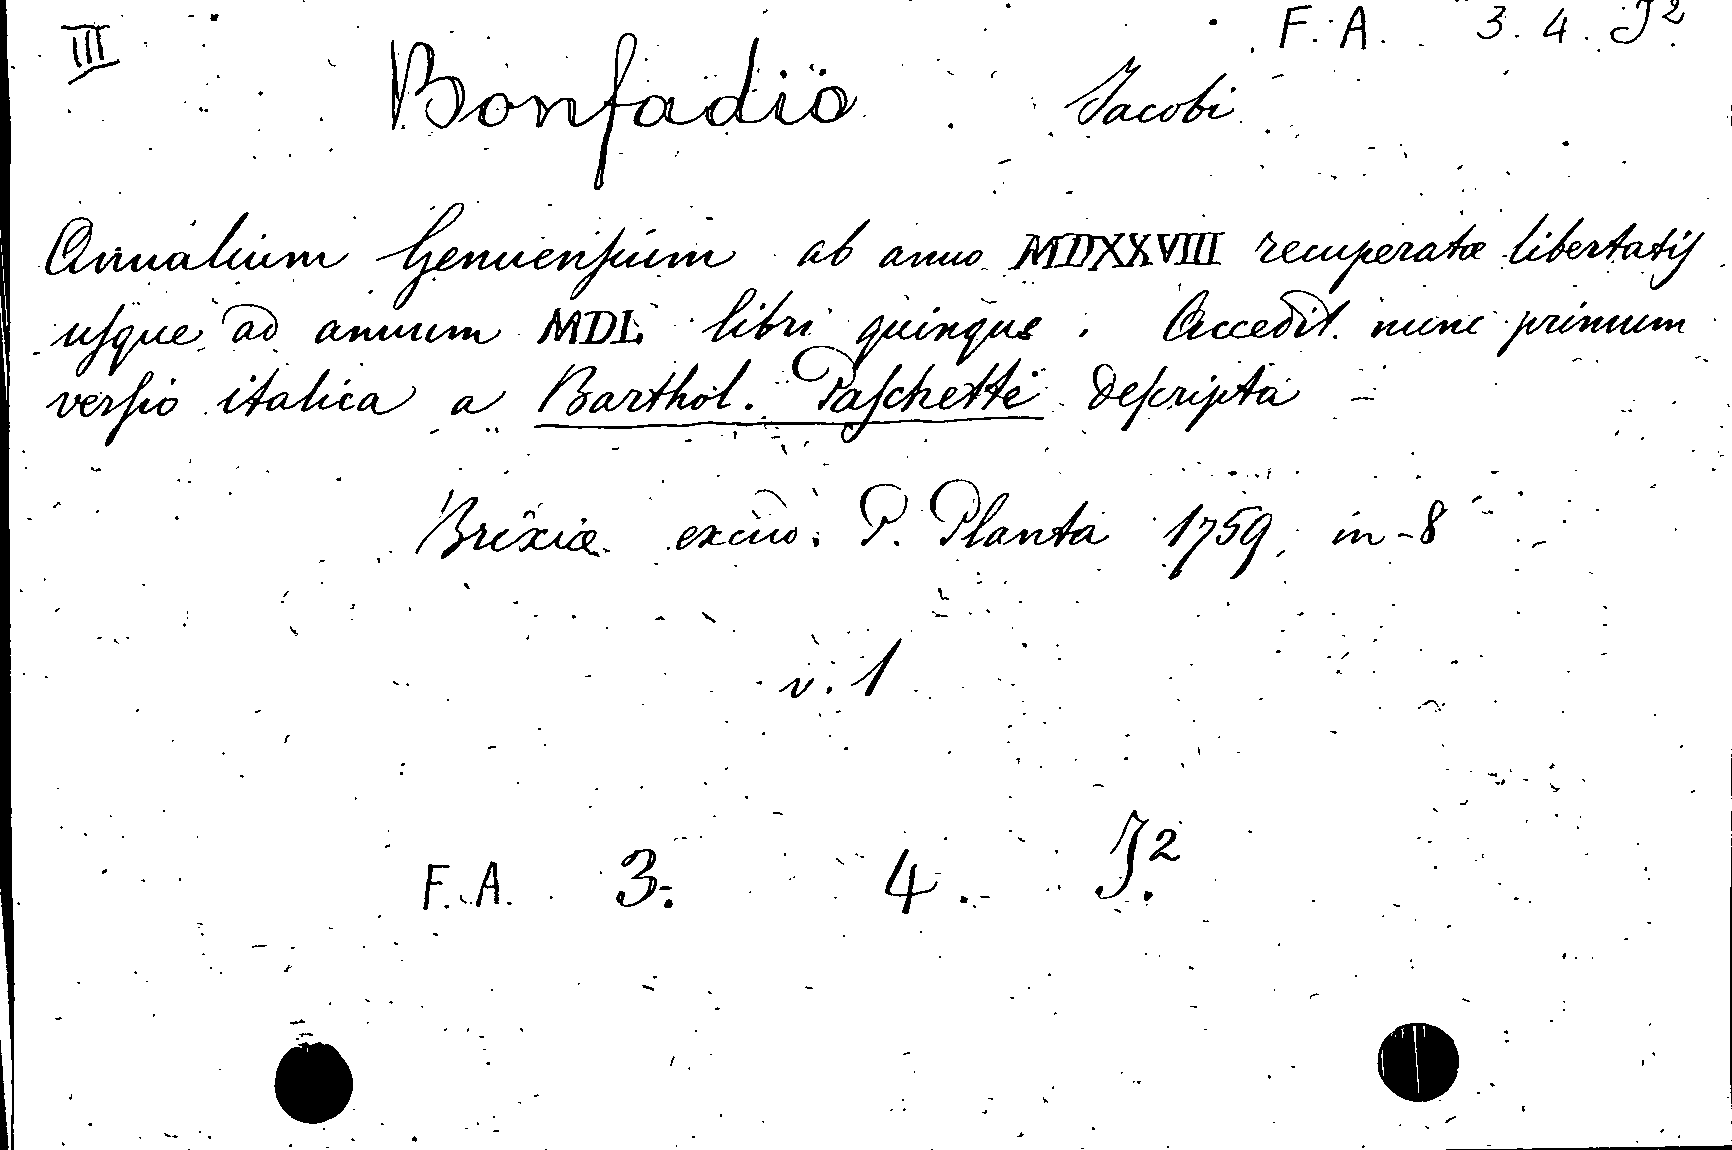 III F. A. 3. 4. J².
Bonfadio Jacobi
Annalium Genuensium ab anno MDXXVIII recuperatæ libertatis
usque ad annum MDL libri quinque. Accedit nunc primum
versio italica a Barthol. Paschetti descripta –
Brixiæ excud. P. Planta 1759, in-8
v. 1
F. A. 3. 4. J².